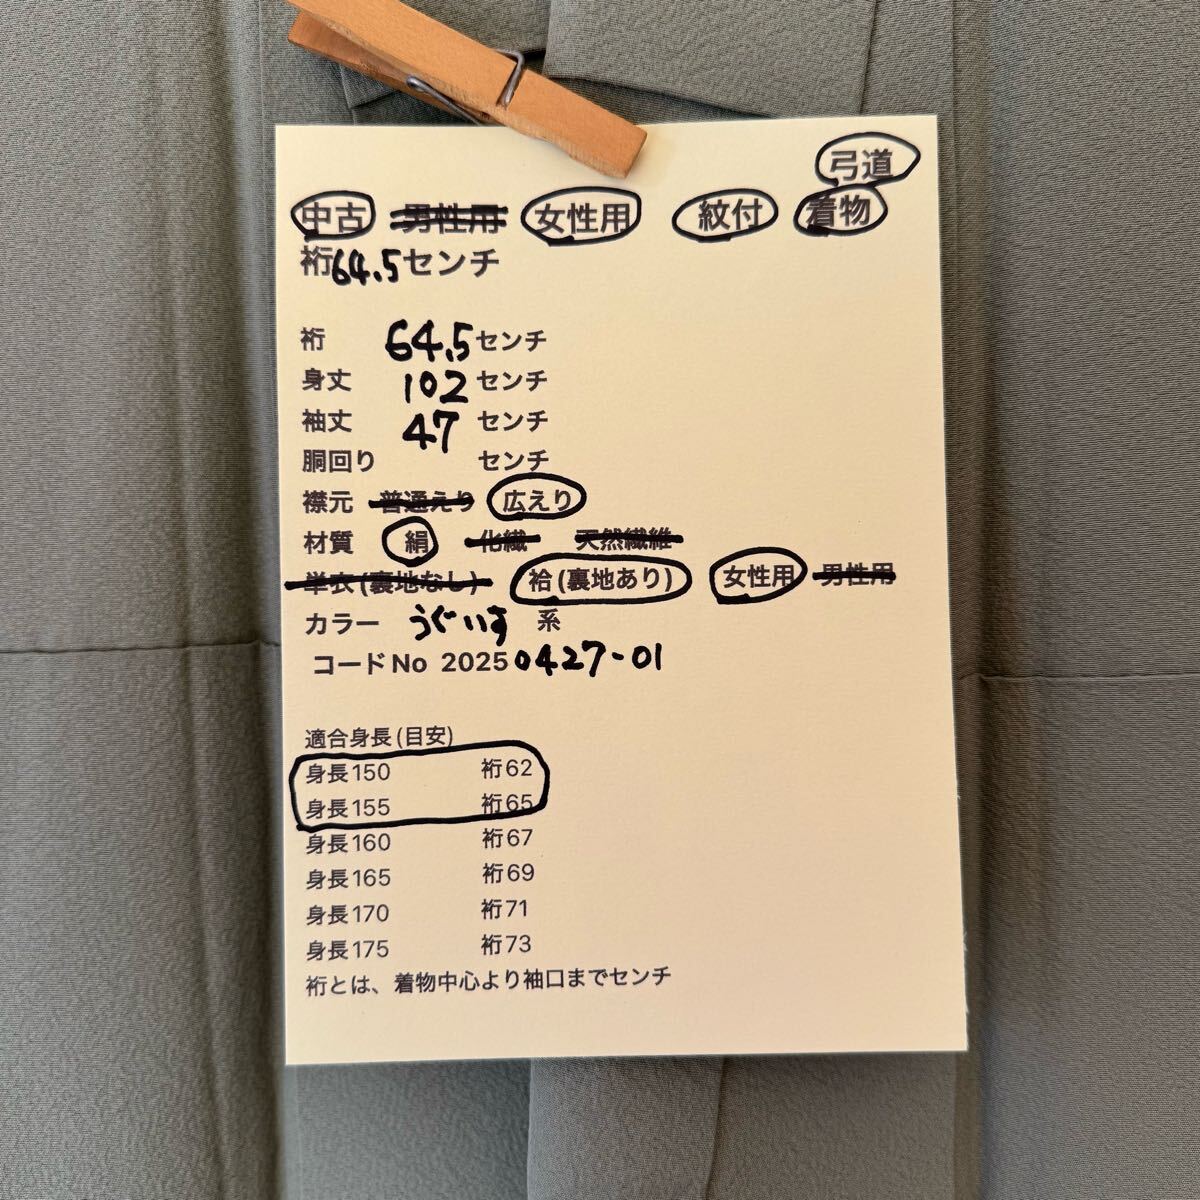 弓道
中古 男性用 女性用 紋付 着物
裄64.5センチ
裄 64.5センチ
身丈 102センチ
袖丈 47 センチ
胴回り センチ
襟元 普通えり 広えり
材質 絹 化繊 天然繊維
単衣(裏地なし) 袷(裏地あり) 女性用 男性用
カラー うぐいす 系
コードNo 20250427-01
適合身長(目安)
身長150 裄62
身長155 裄65
身長160 裄67
身長165 裄69
身長170 裄71
身長175 裄73
裄とは、着物中心より袖口までセンチ